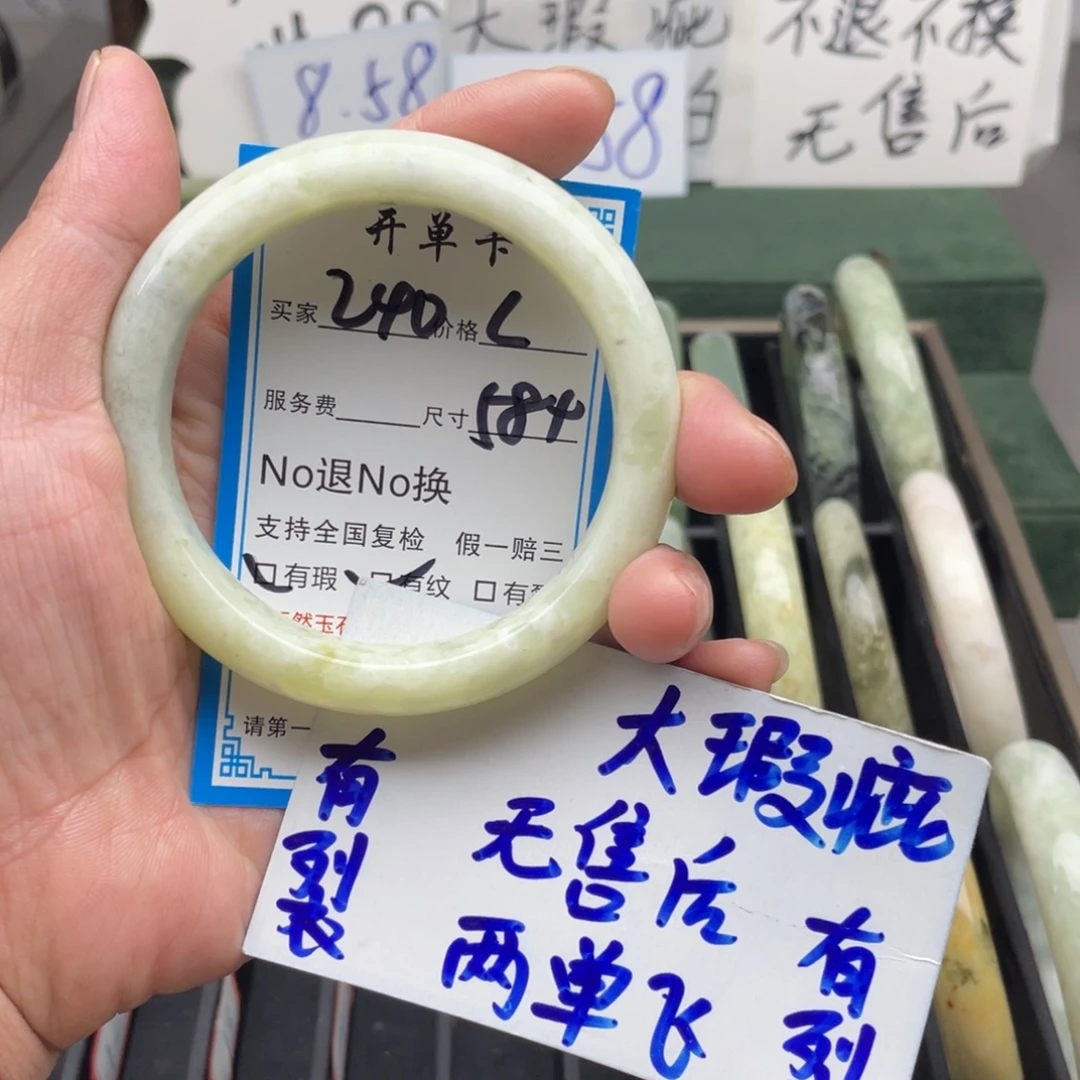 8.58
大瑕疵
58
白
不退不换
无售后
开单卡
买家 240 价格 L
服务费 尺寸 584
No退No换
支持全国复检 假一赔三
有瑕 有纹 有裂
然玉石
请第一
大瑕疵
无售后
两单飞
有裂
有裂